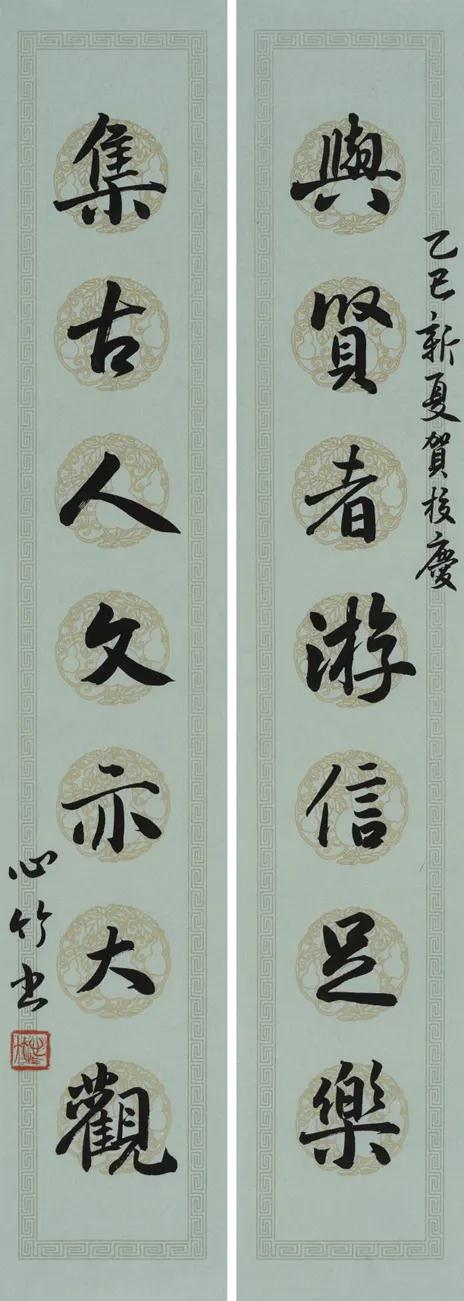 乙巳新夏賀校慶
與賢者游信足樂
集古人文亦大觀
心竹书